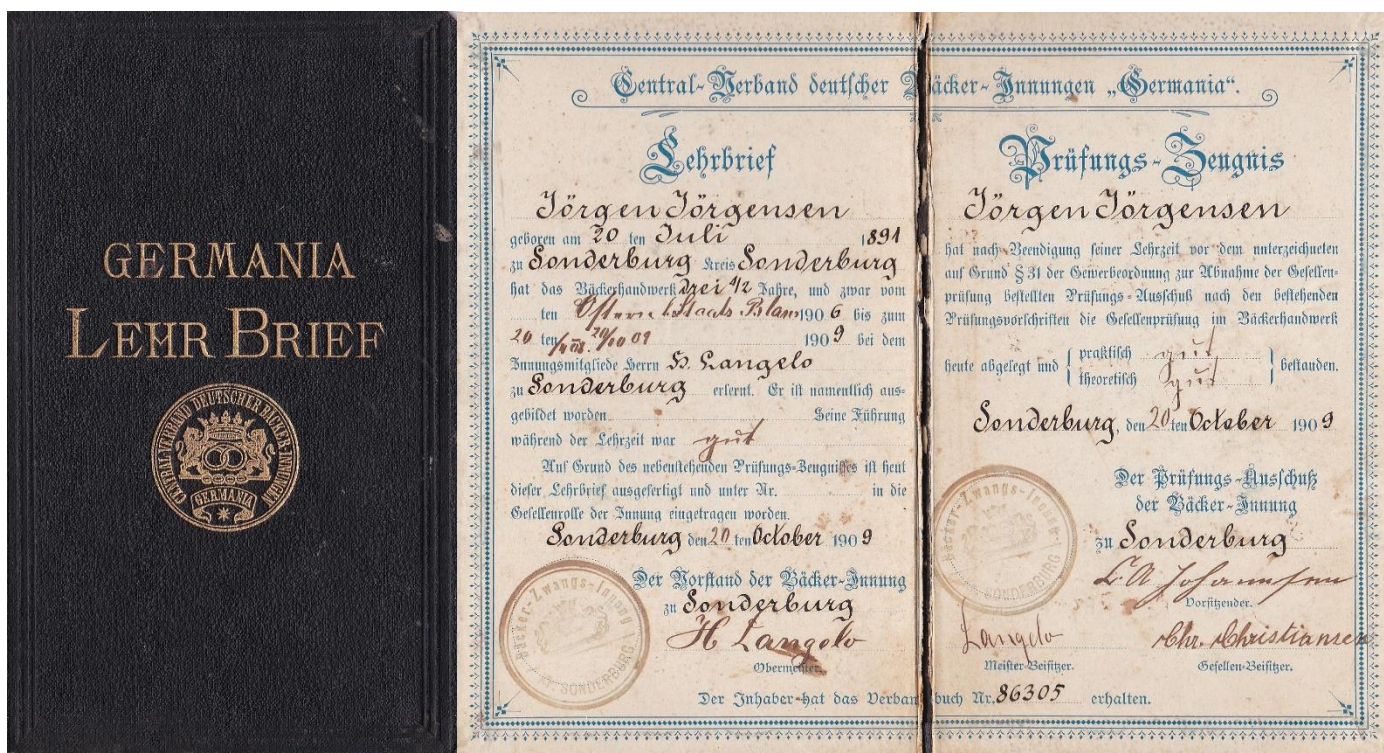 GERMANIA
LEHR BRIEF
CENTRAL-VERBAND DEUTSCHER BÄCKER-INNUNGEN
GERMANIA
Central-Verband deutscher Bäcker-Innungen „Germania“.
Lehrbrief
Jörgen Jörgensen
geboren am 20 ten Juli 1891
zu Sonderburg Kreis Sonderburg
hat das Bäckerhandwerk drei 1/2 Jahre, und zwar vom
ten Ostern 1906 bis zum
20 ten 1909 bei dem
Innungsmitgliede Herrn H. Langelo
zu Sonderburg erlernt. Er ist namentlich aus-
gebildet worden Seine Führung
während der Lehrzeit war gut
Auf Grund des nebenstehenden Prüfungs-Zeugnisses ist heut
dieser Lehrbrief ausgefertigt und unter Nr. in die
Gesellenrolle der Innung eingetragen worden.
Sonderburg den 20 ten October 1909
Der Vorstand der Bäcker-Innung
zu Sonderburg
H Langelo
Obermeister.
Bäcker-Zwangs-Innung
SONDERBURG
Prüfungs-Zeugnis
Jörgen Jörgensen
hat nach Beendigung seiner Lehrzeit vor dem unterzeichneten
auf Grund § 31 der Gewerbeordnung zur Abnahme der Gesellen-
prüfung bestellten Prüfungs-Ausschuß nach den bestehenden
Prüfungsvorschriften die Gesellenprüfung im Bäckerhandwerk
heute abgelegt und { praktisch gut
theoretisch gut } bestanden.
Sonderburg, den 20 ten October 1909
Der Prüfungs-Ausschuß
der Bäcker-Innung
zu Sonderburg
C. A. Johannsen
Vorsitzender.
Bäcker-Zwangs-Innung
SONDERBURG
Langelo Chr. Christiansen
Meister-Beisitzer. Gesellen-Beisitzer.
Der Inhaber hat das Verbandsbuch Nr. 86305 erhalten.